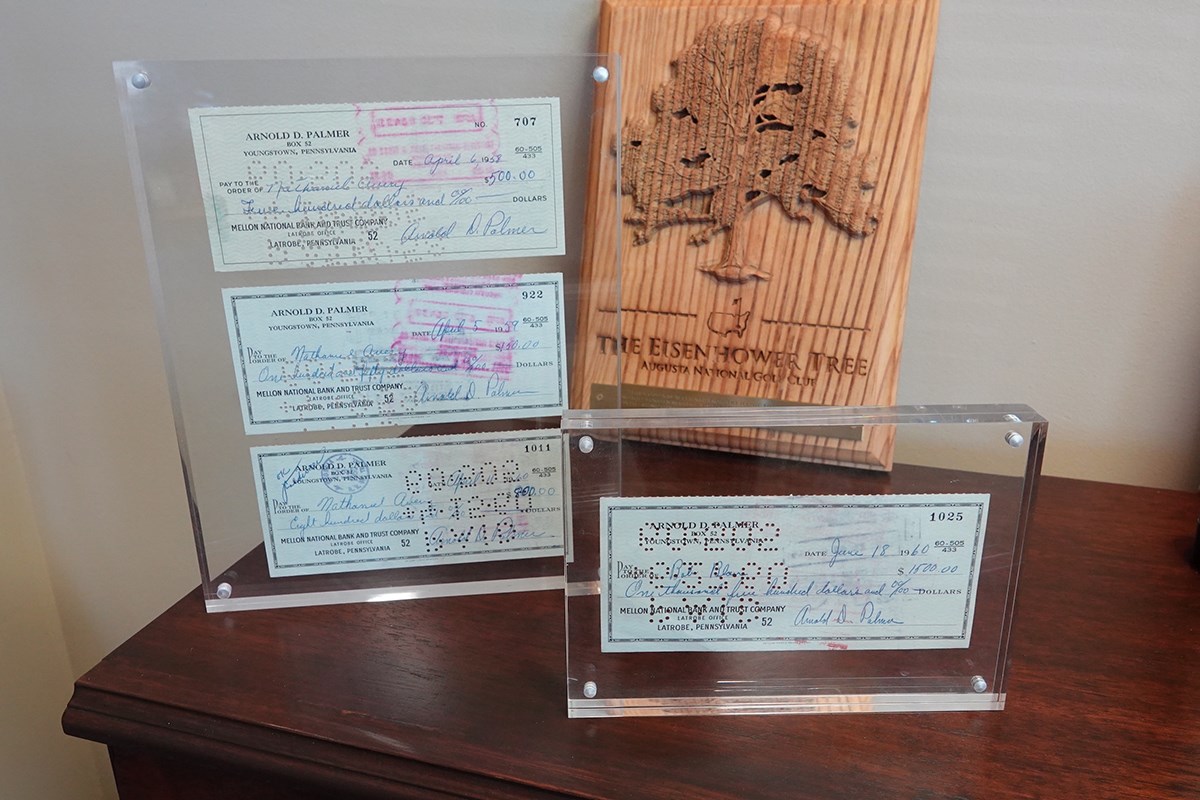 NO. 707
ARNOLD D. PALMER
BOX 52
YOUNGSTOWN, PENNSYLVANIA
DATE April 6, 1958 60-505
433
PAY TO THE
ORDER OF Nathaniel Avery $500.00
Five hundred dollars and 00/00 DOLLARS
MELLON NATIONAL BANK AND TRUST COMPANY
LATROBE OFFICE
LATROBE, PENNSYLVANIA 52 Arnold D. Palmer
922
ARNOLD D. PALMER
BOX 52
YOUNGSTOWN, PENNSYLVANIA
DATE April 5 1959 60-505
433
PAY
TO THE
ORDER OF $150.00
One hundred and fifty dollars and DOLLARS
MELLON NATIONAL BANK AND TRUST COMPANY
LATROBE OFFICE
LATROBE, PENNSYLVANIA 52 Arnold D. Palmer
1011
ARNOLD D. PALMER
BOX 52
YOUNGSTOWN, PENNSYLVANIA
April 60 60-505
433
PAY
TO THE
ORDER OF Nathaniel Avery
Eight hundred DOLLARS
MELLON NATIONAL BANK AND TRUST COMPANY
LATROBE OFFICE
LATROBE, PENNSYLVANIA 52 Arnold D. Palmer
THE EISENHOWER TREE
AUGUSTA NATIONAL GOLF CLUB
1025
ARNOLD D. PALMER
BOX 52
YOUNGSTOWN, PENNSYLVANIA
DATE June 18 1960 60-505
433
PAY
TO THE
ORDER OF Bob $1500.00
One thousand five hundred dollars and 00/00 DOLLARS
MELLON NATIONAL BANK AND TRUST COMPANY
LATROBE OFFICE
LATROBE, PENNSYLVANIA 52 Arnold D. Palmer